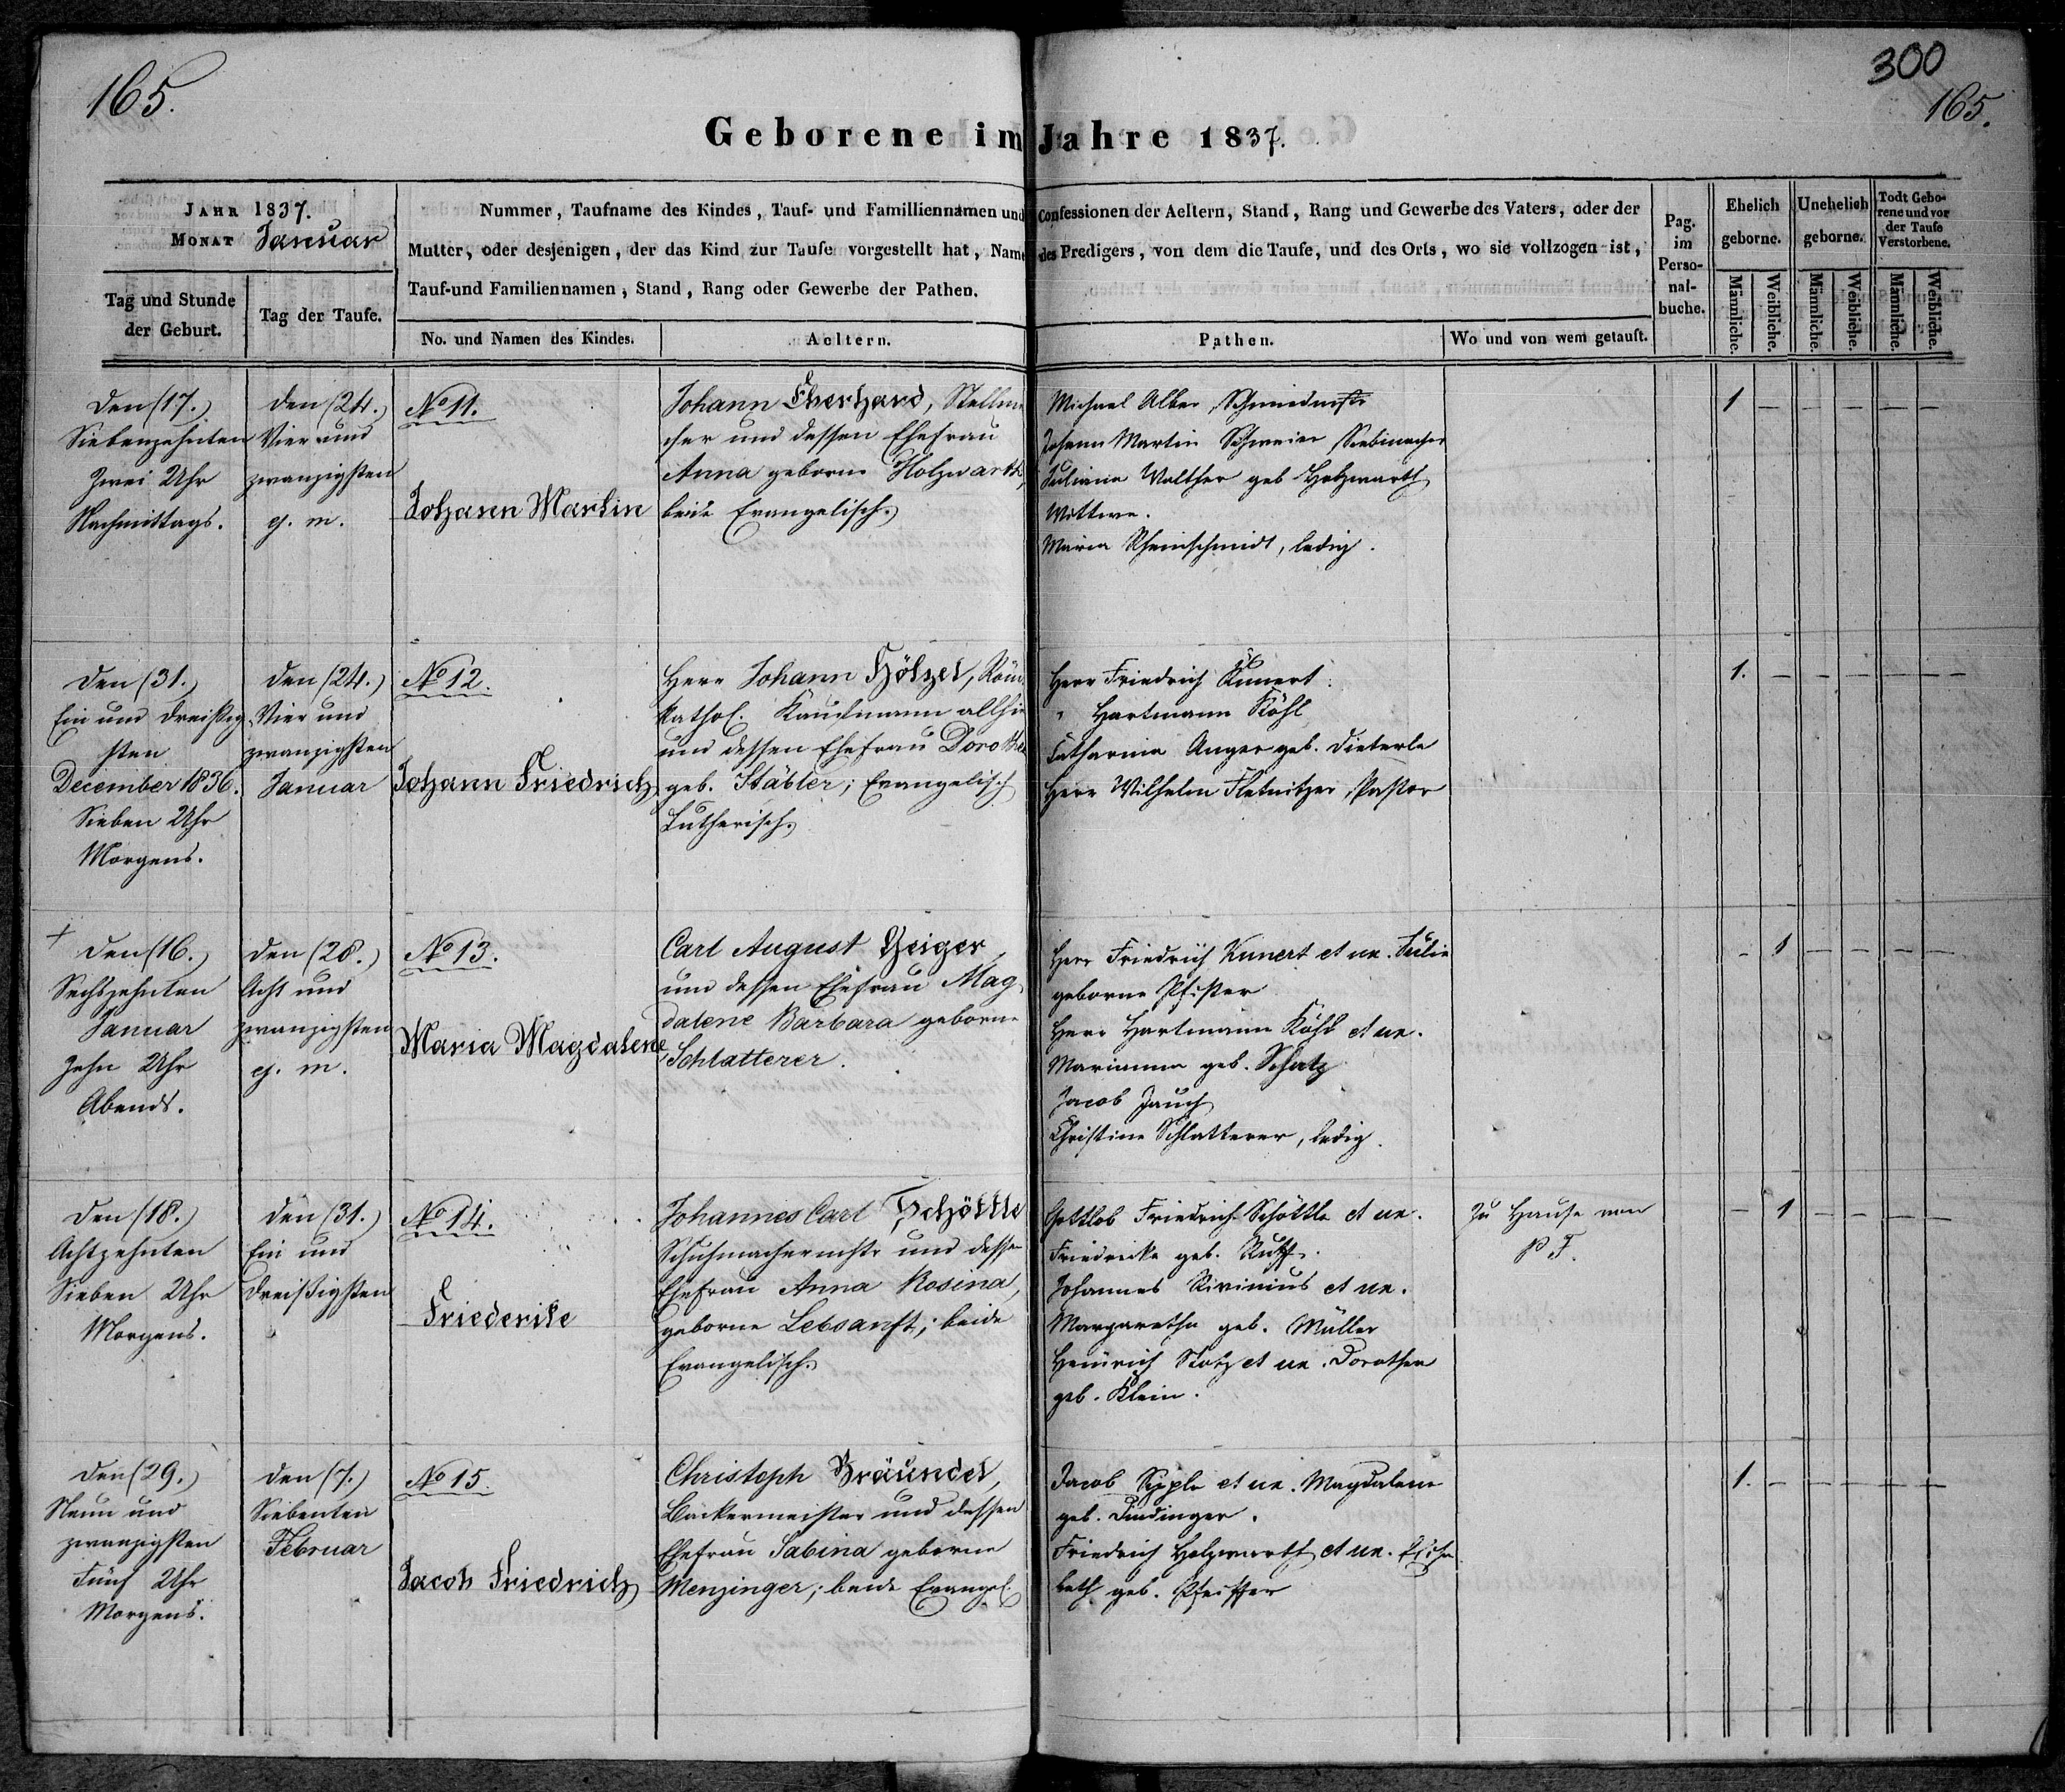 165.
300
165.
Geborene im Jahre 1837.
JAHR 1837.
MONAT Januar
Tag und Stunde
der Geburt.
Tag der Taufe.
Nummer, Taufname des Kindes, Tauf- und Familliennamen und
Mutter, oder desjenigen, der das Kind zur Taufe vorgestellt hat, Name
Tauf-und Familiennamen, Stand, Rang oder Gewerbe der Pathen.
No. und Namen des Kindes.
Aeltern.
Confessionen der Aeltern, Stand, Rang und Gewerbe des Vaters, oder der
des Predigers, von dem die Taufe, und des Orts, wo sie vollzogen ist,
Pathen.
Wo und von wem getauft.
Pag.
im
Perso-
nal-
buche.
Ehelich
geborne.
Unehelich
geborne.
Todt Gebo-
rene und vor
der Taufe
Verstorbene.
Männliche.
Weibliche.
Männliche.
Weibliche.
Männliche.
Weibliche.
Den (17.)
Siebenzehnten
Zwei Uhr
Nachmittags.
den (24.)
Vier und
zwanzigsten
ej. m.
No 11.
Johann Martin
Johann Eberhard, Stellma
cher und dessen Ehefrau
Anna geborne Holzwarth,
beide Evangelisch.
Michael Alber, Schmiedmstr
Johann Martin Schweier Siebmacher
Juliana Walther geb Holzwarth
Wittwe.
Maria Rheinschmidt, ledig.
1 – – – – –
Den (31.)
Ein und dreißig
sten
December 1836.
Sieben Uhr
Morgens.
den (24.)
Vier und
zwanzigsten
Januar
No 12.
Johann Friedrich
Herr Johann Hölzel, Röm.
Kathol. Kaufmann allhie
und dessen Ehefrau Dorothea
geb. Stäbler; Evangelisch
Lutherisch.
Herr Friedrich Kunert.
" Hartmann Köhl
Catharina Anger geb. Dieterle
Herr Wilhelm Fletnitzer, Pastor
1. – – – – –
+
Den (16.)
Sechszehnten
Januar
Zehn Uhr
Abends.
den (28.)
Acht und
zwanzigsten
ej. m.
No 13.
Maria Magdalene
Carl August Geiger,
und dessen Ehefrau Mag
dalene Barbara geborne
Schlatterer.
Herr Friedrich Kunert et ux. Julie
geborne Pfister
Herr Hartmann Köhl et ux.
Marianna geb. Schatz
Jacob Jauch
Christine Schlatterer, ledig.
– 1 – – – –
Den (18.)
Achtzehnten
Sieben Uhr
Morgens.
den (31.)
Ein und
dreißigsten
No 14.
Friederike
Johannes Carl Schöttle
Schuhmachermstr und dessen
Ehefrau Anna Rosina,
geborne Lebsanft; beide
Evangelisch.
Gottlob Friedrich Schöttle et ux.
Friedericke geb. Ruff.
Johannes Rivinius et ux.
Margaretha geb. Müller
Heinrich Stotz et ux. Dorothea
geb. Klein.
Zu Hause von
P F.
– 1 – – – –
Den (29.)
Neun und
zwanzigsten
Fünf Uhr
Morgens.
den (7.)
Siebenten
Februar
No 15.
Jacob Friedrich
Christoph Bräundel,
Bäckermeister und dessen
Ehefrau Sabina geborne
Menzinger; beide Evangel.
Jacob Sipple et ux. Magdalena
geb. Dindinger.
Friedrich Holzwarth et ux. Elisa
beth geb. Pfeiffer
1. – – – – –